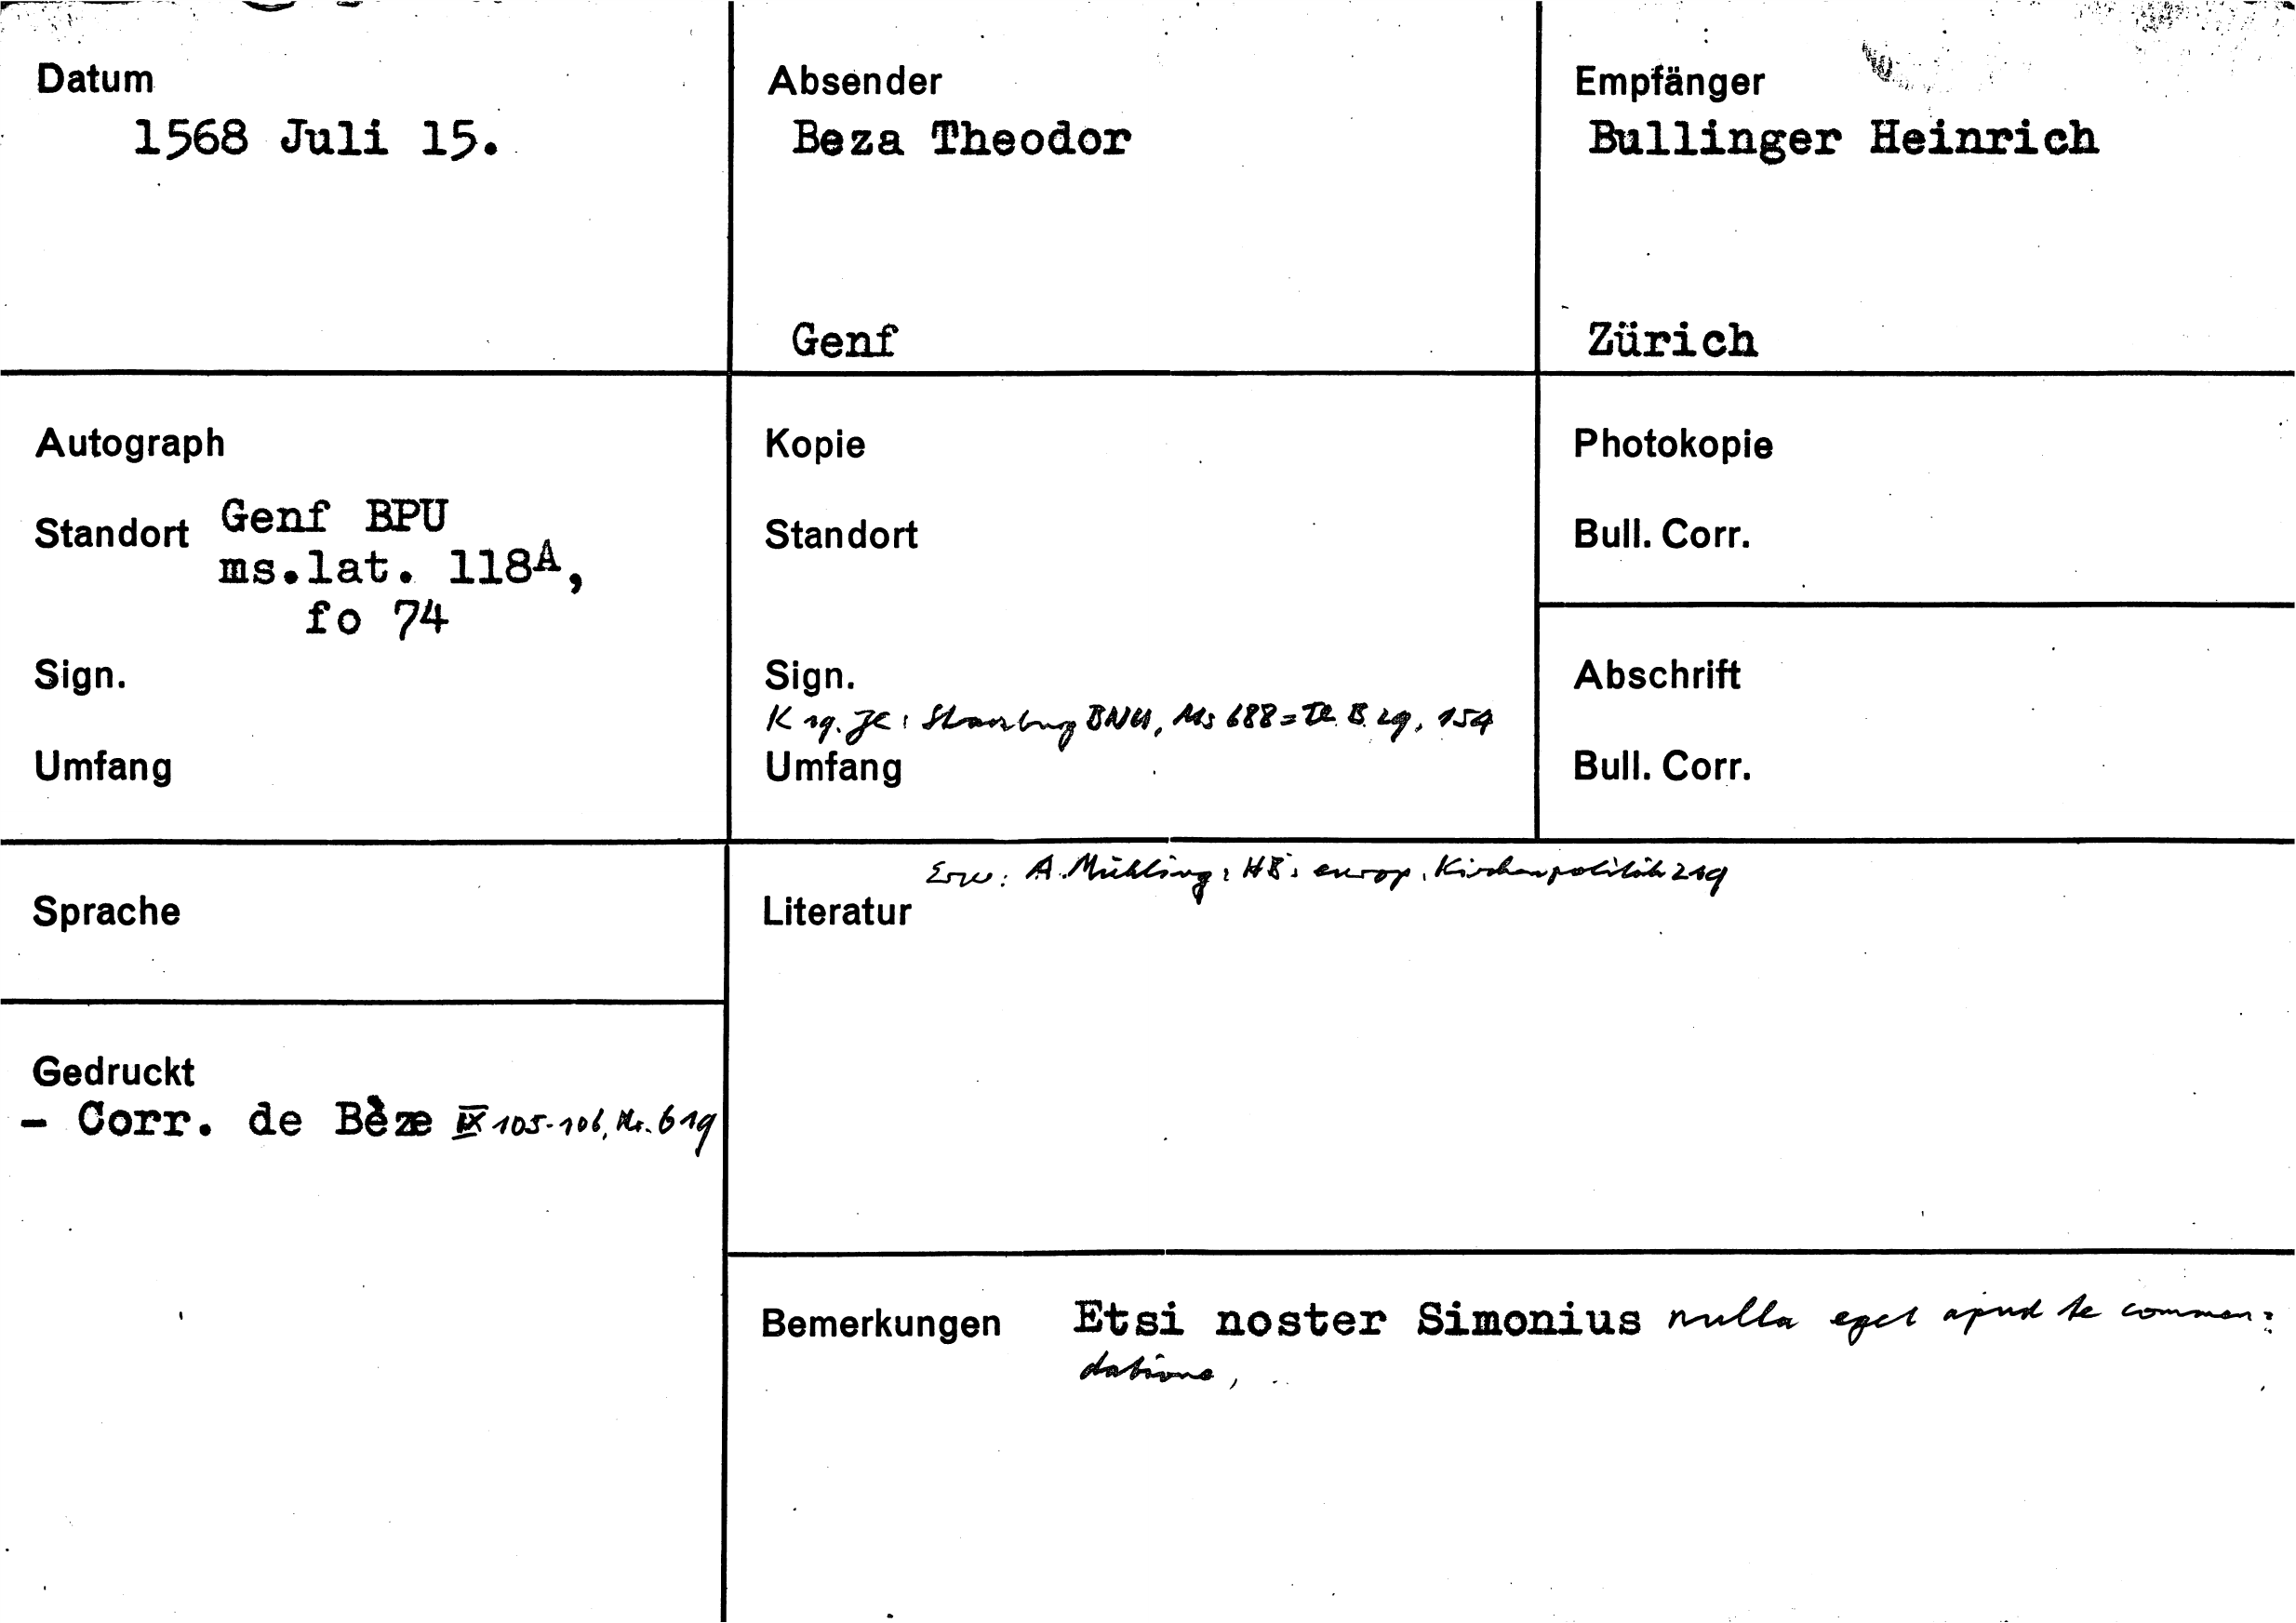 Datum
1568 Juli 15.
Absender
Beza Theodor
Genf
Empfänger
Bullinger Heinrich
Zürich
Autograph
Standort Genf BPU
ms.lat. 118A,
fo 74
Sign.
Umfang
Kopie
Standort
Sign.
K 19. Jh: Strassburg BNU, Ms 688 = Th. B. 29, 154
Umfang
Photokopie
Bull. Corr.
Abschrift
Bull. Corr.
Sprache
Gedruckt
- Corr. de Bèze IX 105-106, Nr. 619
Erw: A. Mühling: HB's europ. Kirchenpolitik 219
Literatur
Bemerkungen Etsi noster Simonius nulla eget apud te commen=
datione, ..